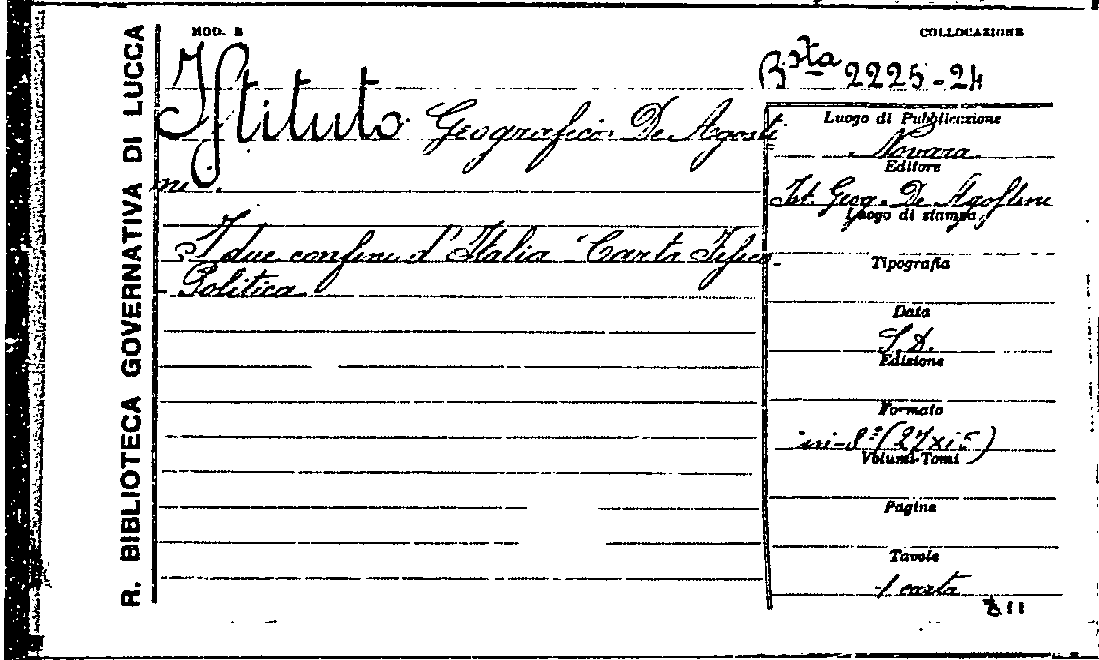 R. BIBLIOTECA GOVERNATIVA DI LUCCA
MOD. B
COLLOCAZIONE
Bsta 2225-24
Istituto Geografico De Agosti
ni.
I due confini d'Italia - Carta Fisico
Politica
Luogo di Pubblicazione
Novara
Editore
Ist. Geog. De Agostini
Luogo di stampa
Tipografia
Data
S.D.
Edizione
Formato
in-8° (27x15)
Volumi-Tomi
Pagine
Tavole
1 carta